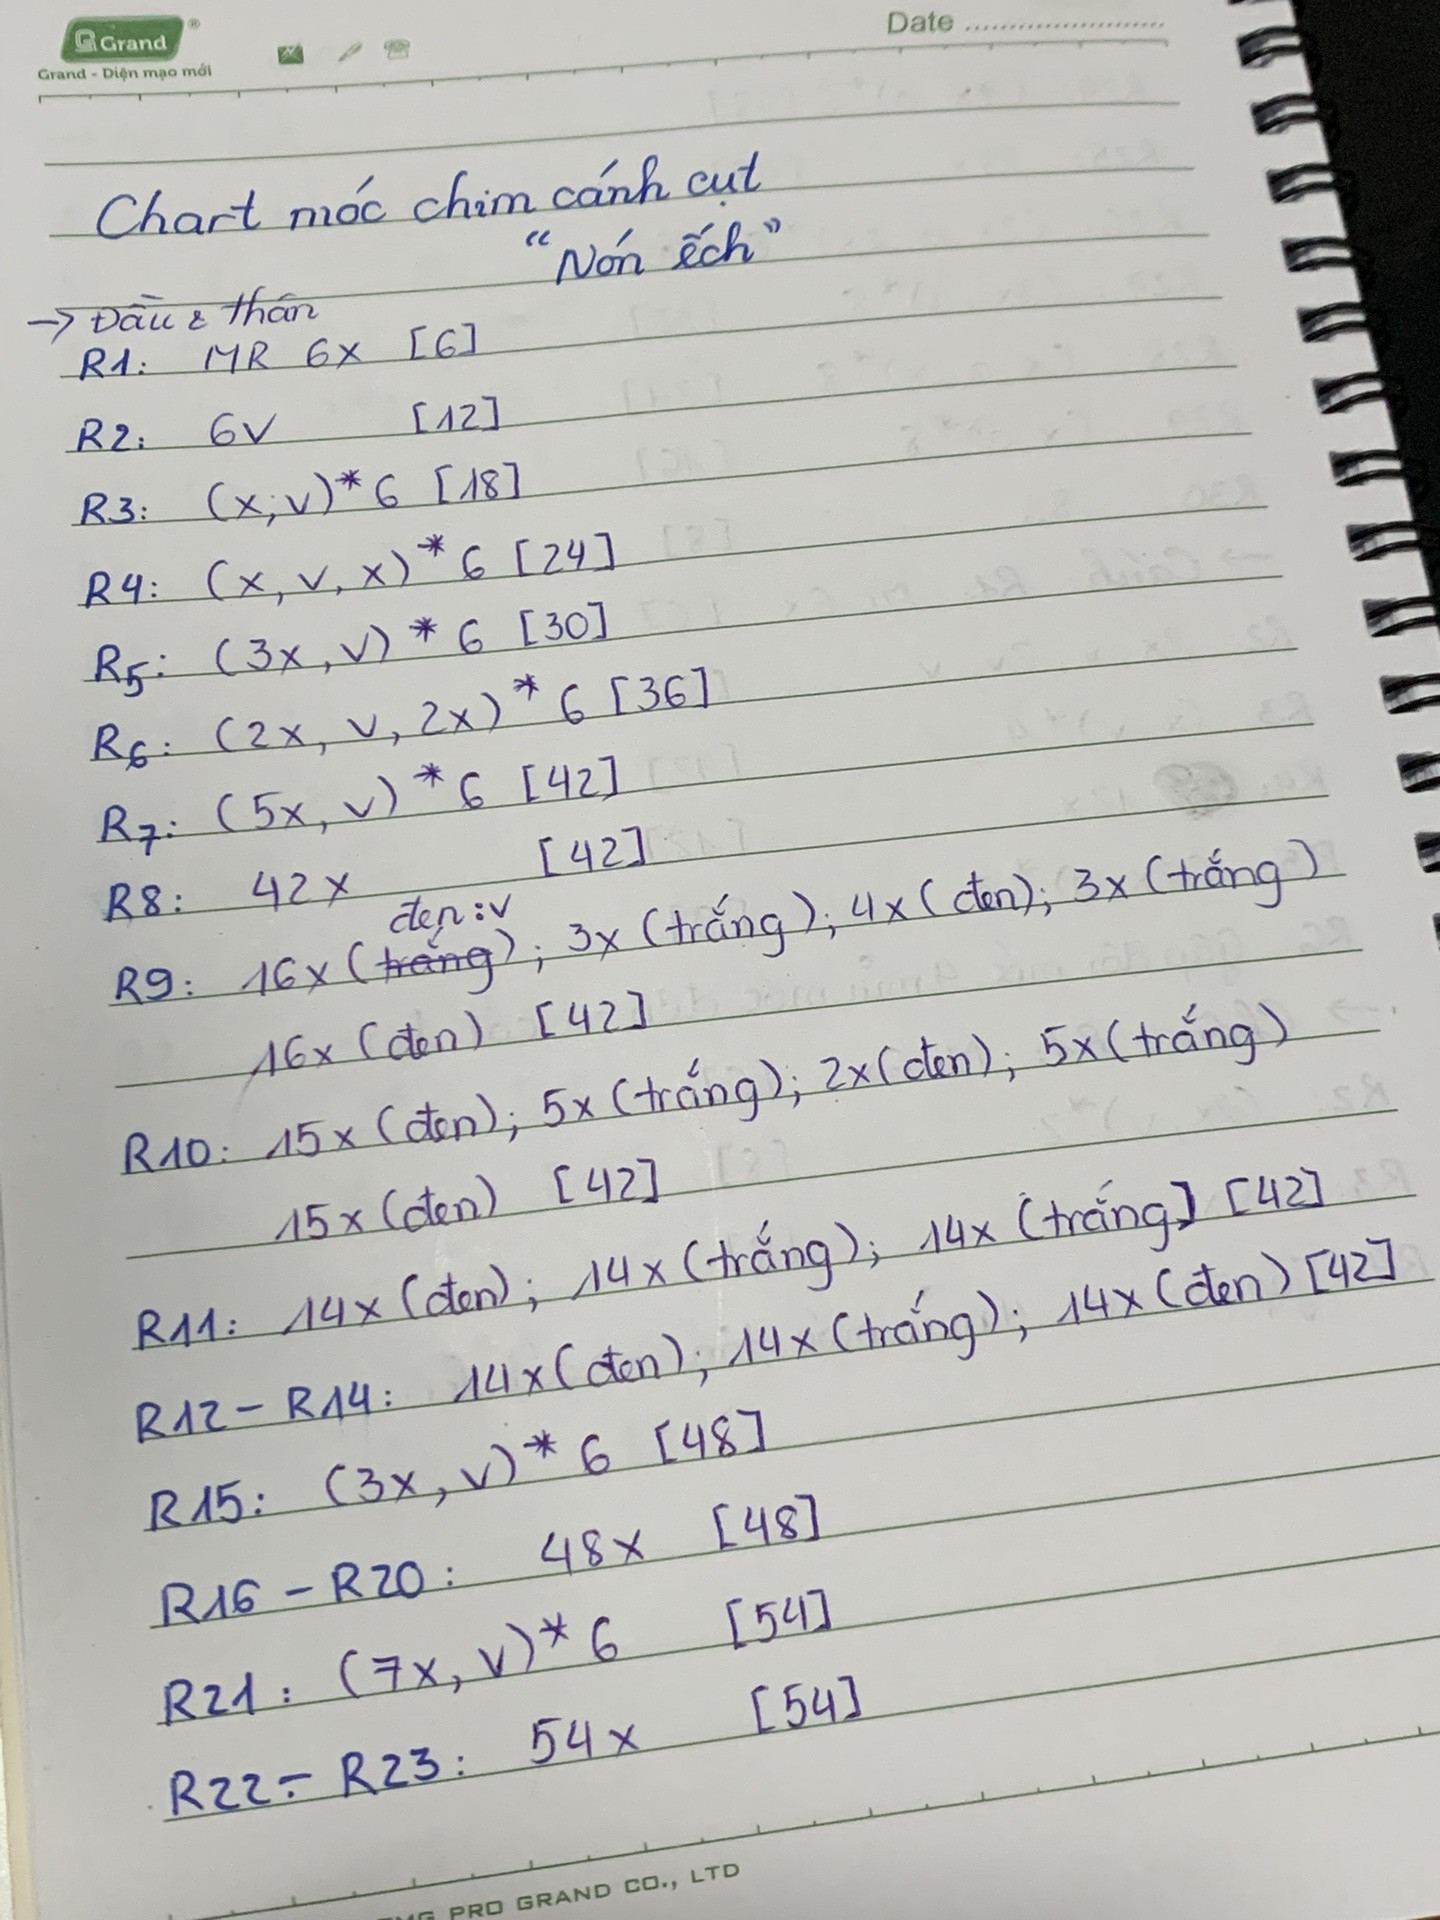 Grand ®
Grand - Diện mạo mới
Date
Chart móc chim cánh cụt
“Nón ếch”
→ Đầu & thân
R1: MR 6x [6]
R2: 6v [12]
R3: (x, v)* 6 [18]
R4: (x, v, x)* 6 [24]
R5: (3x, v)* 6 [30]
R6: (2x, v, 2x)* 6 [36]
R7: (5x, v)* 6 [42]
R8: 42x [42]
đen :v
R9: 16x (trắng); 3x (trắng); 4x (đen); 3x (trắng)
16x (đen) [42]
R10: 15x (đen); 5x (trắng); 2x (đen); 5x (trắng)
15x (đen) [42]
R11: 14x (đen); 14x (trắng); 14x (trắng] [42]
R12 - R14: 14x (đen); 14x (trắng); 14x (đen) [42]
R15: (3x, v)* 6 [48]
R16 - R20: 48x [48]
R21: (7x, v)* 6 [54]
R22 - R23: 54x [54]
PRO GRAND CO., LTD